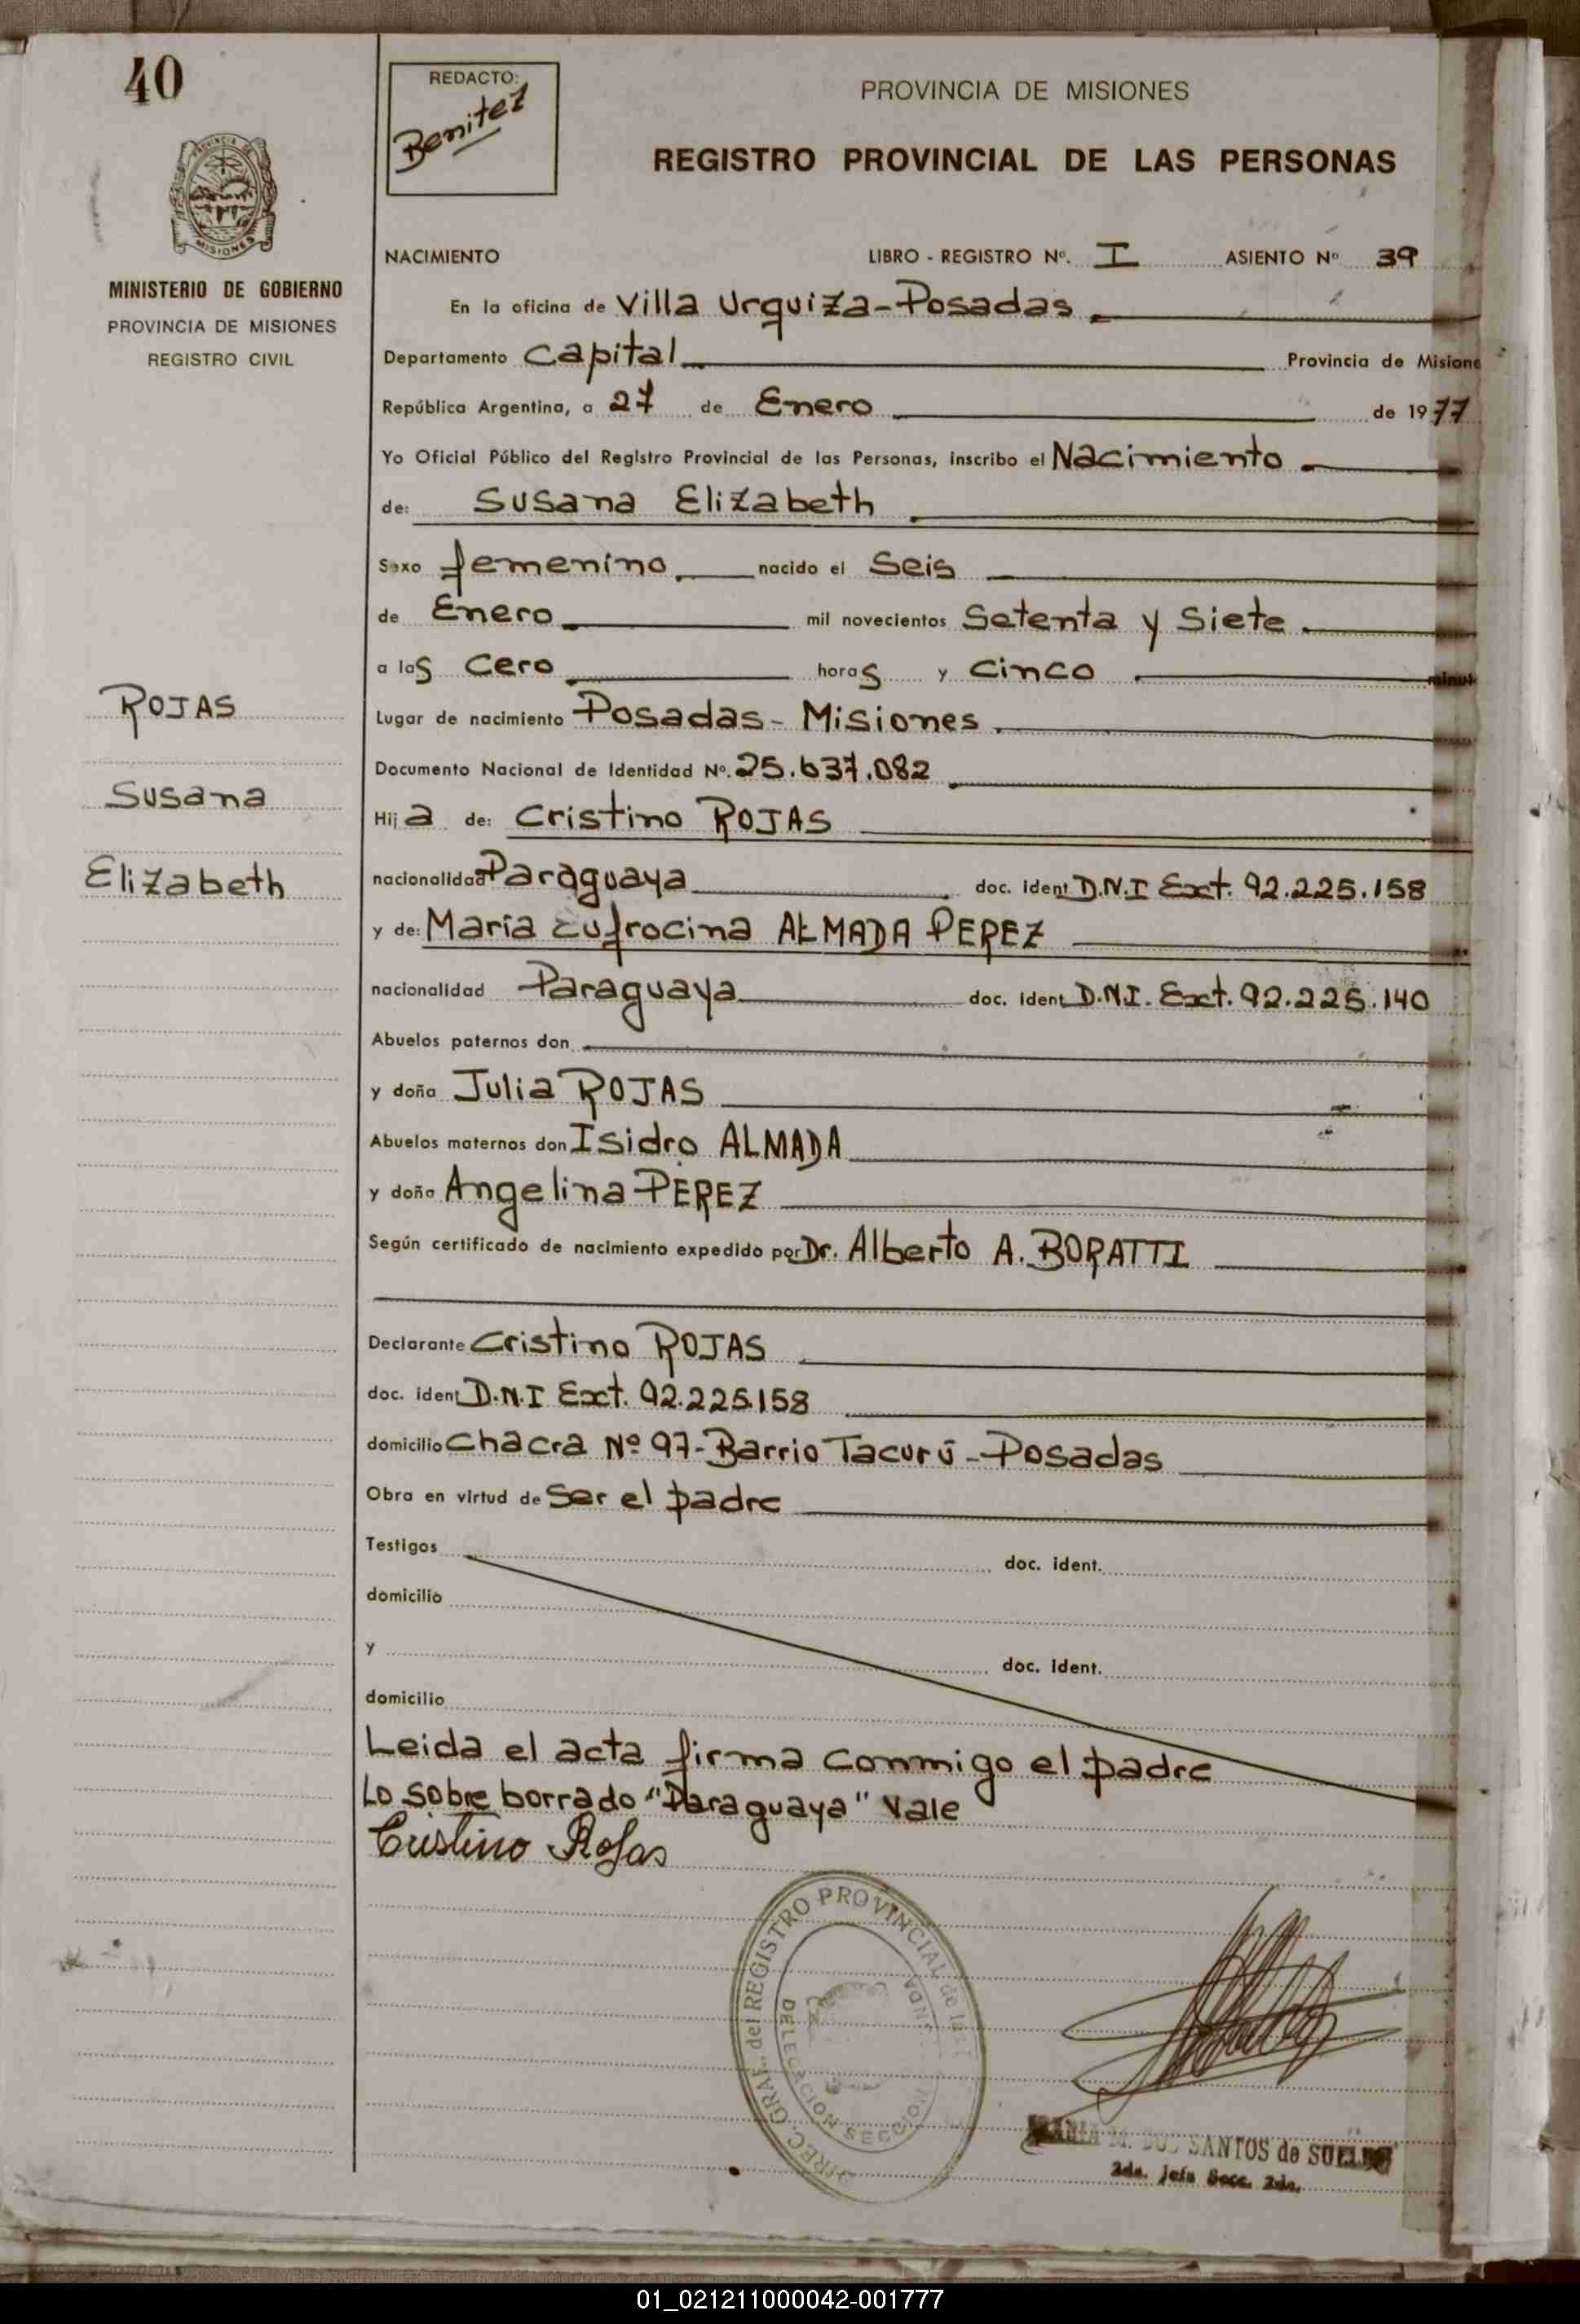 40
REDACTO:
Benitez
PROVINCIA DE MISIONES
REGISTRO PROVINCIAL DE LAS PERSONAS
MISIONES
MINISTERIO DE GOBIERNO
PROVINCIA DE MISIONES
REGISTRO CIVIL
NACIMIENTO LIBRO - REGISTRO Nº. I ASIENTO Nº 39
En la oficina de Villa Urquiza-Posadas
Departamento Capital Provincia de Misione
República Argentina, a 27 de Enero de 1977
Yo Oficial Público del Registro Provincial de las Personas, inscribo el Nacimiento
de: Susana Elizabeth
Sexo femenino nacido el Seis
de Enero mil novecientos Setenta y Siete
a las Cero horas y Cinco minut
Lugar de nacimiento Posadas- Misiones
Documento Nacional de Identidad Nº. 25.637.082
Hija de: Cristino ROJAS
nacionalidad Paraguaya doc. ident D.N.I Ext. 92.225.158
y de: María Eufrocina ALMADA PEREZ
nacionalidad Paraguaya doc. ident D.N.I. Ext. 92.225.140
Abuelos paternos don
y doña Julia ROJAS
Abuelos maternos don Isidro ALMADA
y doña Angelina PEREZ
Según certificado de nacimiento expedido por Dr. Alberto A. BORATTI
Declarante Cristino ROJAS
doc. ident D.N.I Ext. 92.225.158
domicilio Chacra Nº 97-Barrio Tacurú-Posadas
Obra en virtud de Ser el padre
Testigos doc. ident.
domicilio
y doc. ident.
domicilio
Leida el acta firma conmigo el padre
Lo sobre borrado "Paraguaya" Vale
Cristino Rojas
ROJAS
Susana
Elizabeth
DIREC. GRAL. del REGISTRO PROVINCIAL de las
DELEGACION SECCION
SANTOS de SUELDO
2da. Jefa Secc. 2da.
01_021211000042-001777